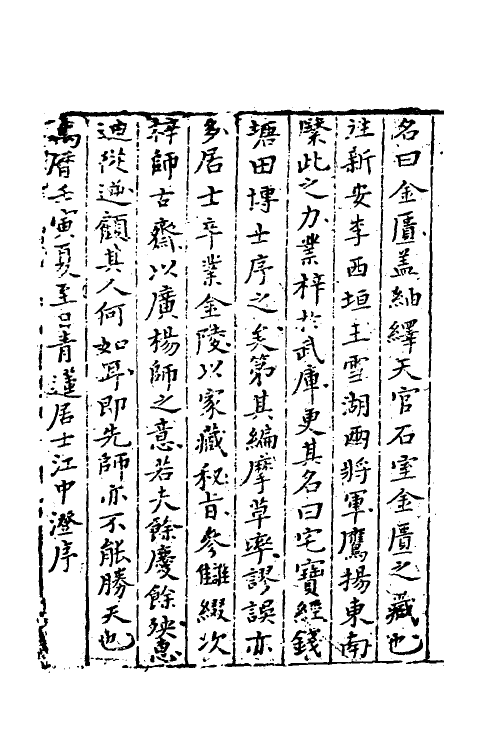 名曰金匱蓋紬繹天官石室金匱之藏也
往新安李西垣王雪湖兩將軍鷹揚東南
緊此之力業梓於武庫更其名曰宅寶經錢
塘田博士序之矣第其編摩草率謬誤亦
多居士卒業金陵以家藏秘旨參讎綴次
梓師古齋以廣楊師之意若夫餘慶餘殃惠
迪從逆顧其人何如耳即先師亦不能勝天也
萬曆壬寅夏至日青蓮居士江中澄序